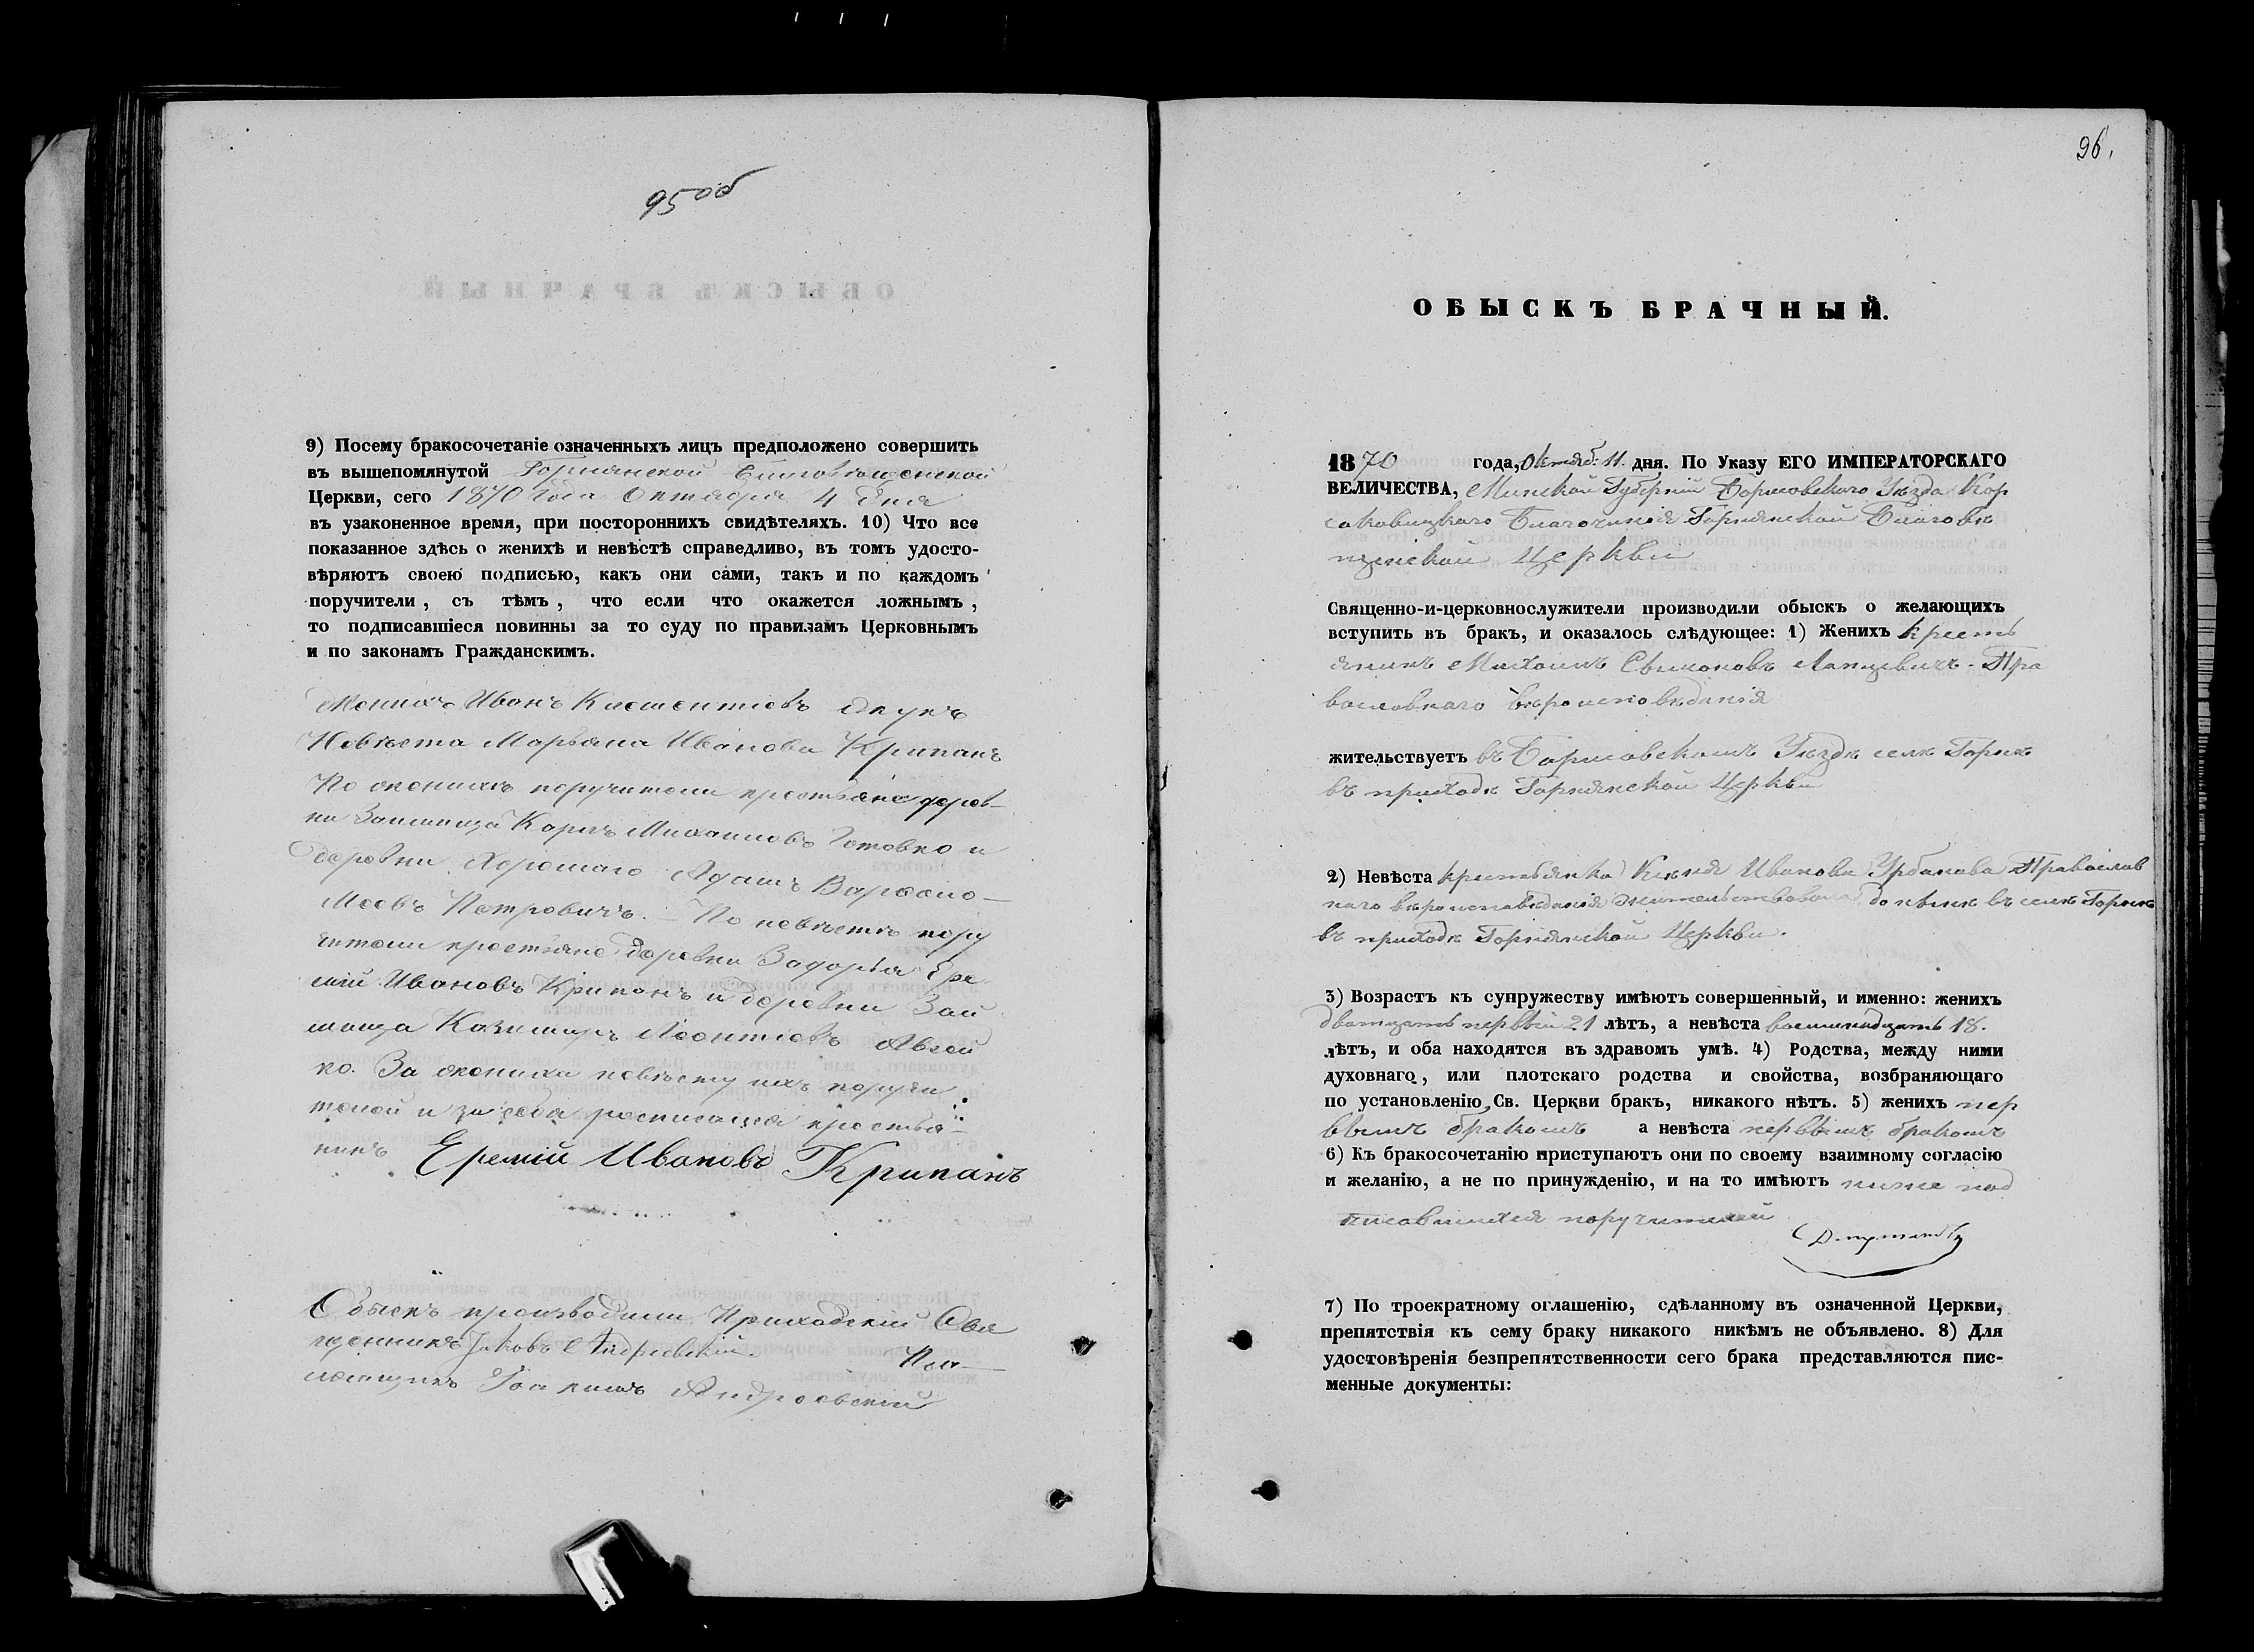 95 об
9) Посему бракосочетаніе означенныхъ лицъ предположено совершить
въ вышепомянутой Горнянской Благовѣщенской
Церкви, сего 1870 Года Октября 4 дня
въ узаконенное время, при постороннихъ свидѣтеляхъ. 10) Что все
показанное здѣсь о женихѣ и невѣстѣ справедливо, въ томъ удосто-
вѣряютъ своею подписью, какъ они сами, такъ и по каждомъ
поручители, съ тѣмъ, что если что окажется ложнымъ,
то подписавшіеся повинны за то суду по правиламъ Церковнымъ
и по законамъ Гражданскимъ.
Женихъ Иванъ Клементіевъ
Невѣста Марьяна Иванова Крипанъ
По женихѣ поручители крестьяне дерев-
ни Карпъ Михаиловъ Готовко и
деревни Хорошаго Адамъ Варфоло-
меевъ Петровичъ. – По невѣстѣ пору
чители крестьяне деревни Загорья Ере-
мій Ивановъ Крипанъ и деревни
Казимиръ Леонтіевъ Авсей
ко. За жениха невѣсту ихъ поручи
телей и за себя росписался крестья-
нинъ Еремій Ивановъ Крипанъ
Обыскъ производили Приходскій Свя
щенникъ Іаковъ Андреевскій. Пса-
ломщикъ Іоакимъ Андреевскій
96.
ОБЫСКЪ БРАЧНЫЙ.
1870 года, Октяб: 11. дня. По Указу ЕГО ИМПЕРАТОРСКАГО
ВЕЛИЧЕСТВА, Минской Губерніи Борисовскаго Уѣзда Кор
саковицкаго Благочинія Горнянской Благовѣ
щенской Церкви
Священно-и-церковнослужители производили обыскъ о желающихъ
вступить въ бракъ, и оказалось слѣдующее: 1) Женихъ Кресть
янинъ Михаилъ Сымоновъ Лапцевичъ - Пра
вославнаго вѣроисповѣданія
жительствуетъ въ Борисовскомъ Уѣздѣ селѣ Горнѣ
въ приходѣ Горнянской Церкви
2) Невѣста крестьянка Ксенія Иванова Урбанова Православ
наго вѣроисповѣданія жительствовала до нынѣ въ селѣ Горнѣ
въ приходѣ Горнянской Церкви.
3) Возрастъ къ супружеству имѣютъ совершенный, и именно: женихъ
дватцать первый 21 лѣтъ, а невѣста восимнадцать 18.
лѣтъ, и оба находятся въ здравомъ умѣ. 4) Родства, между ними
духовнаго, или плотскаго родства и свойства, возбраняющаго
по установленію Св. Церкви бракъ, никакого нѣтъ. 5) женихъ пер
вымъ бракомъ а невѣста первымъ бракомъ
6) Къ бракосочетанію приступаютъ они по своему взаимному согласію
и желанію, а не по принужденію, и на то имѣютъ ниже под
писавшихся поручителей
7) По троекратному оглашенію, сдѣланному въ означенной Церкви,
препятствія къ сему браку никакого никѣмъ не объявлено. 8) Для
удостовѣренія безпрепятственности сего брака представляются пис-
менные документы: